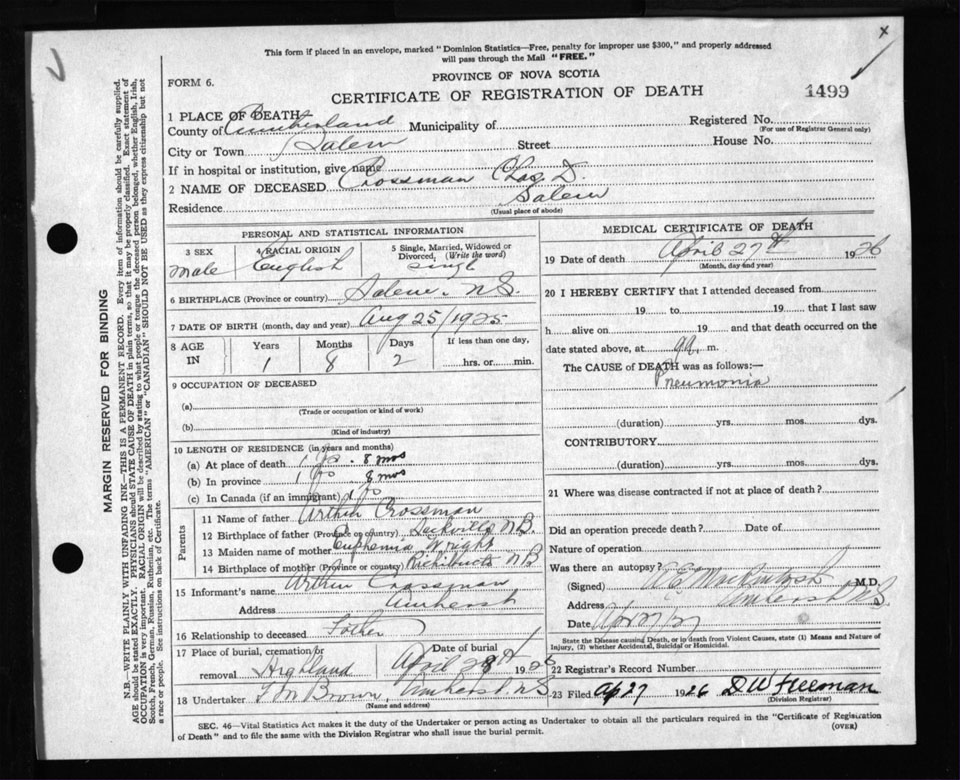 This form if placed in an envelope, marked "Dominion Statistics—Free, penalty for improper use $300," and properly addressed
will pass through the Mail "FREE."
x
FORM 6.
PROVINCE OF NOVA SCOTIA
CERTIFICATE OF REGISTRATION OF DEATH
1499
1 PLACE OF DEATH
County of Cumberland Municipality of Registered No.
(For use of Registrar General only)
City or Town Salem Street House No.
If in hospital or institution, give name
2 NAME OF DECEASED Crossman Chas. D.
Residence Salem
(Usual place of abode)
PERSONAL AND STATISTICAL INFORMATION
3 SEX 4 RACIAL ORIGIN 5 Single, Married, Widowed or Divorced, (Write the word)
male English single
6 BIRTHPLACE (Province or country) Salem, N.S.
7 DATE OF BIRTH (month, day and year) Aug 25/1925
8 AGE IN Years Months Days If less than one day,
1 8 2 hrs. or min.
9 OCCUPATION OF DECEASED
(a)
(Trade or occupation or kind of work)
(b)
(Kind of industry)
10 LENGTH OF RESIDENCE (in years and months)
(a) At place of death 1 8 mos
(b) In province 1 8 mos
(c) In Canada (if an immigrant)
Parents
11 Name of father Arthur Crossman
12 Birthplace of father (Province or country) Sackville N.B.
13 Maiden name of mother Euphemia Wright
14 Birthplace of mother (Province or country) Richibucto N B
15 Informant's name Arthur Crossman
Address Amherst
16 Relationship to deceased Father
17 Place of burial, cremation or removal Highland
Date of burial April 28th 1926
18 Undertaker Brown, Amherst, N.S
(Name and address)
MEDICAL CERTIFICATE OF DEATH
19 Date of death April 27th 1926
(Month, day and year)
20 I HEREBY CERTIFY that I attended deceased from
19 to 19 that I last saw
h alive on 19 and that death occurred on the
date stated above, at m.
The CAUSE of DEATH was as follows:—
Pneumonia
(duration) yrs. mos. dys.
CONTRIBUTORY.
(duration) yrs. mos. dys.
21 Where was disease contracted if not at place of death?
Did an operation precede death? Date of
Nature of operation
Was there an autopsy?
(Signed) MacKintosh M.D.
Address Amherst N.S
Date
State the Disease causing Death, or in death from Violent Causes, state (1) Means and Nature of
Injury, (2) whether Accidental, Suicidal or Homicidal.
22 Registrar's Record Number
23 Filed Ap 27 1926 D W Freeman
(Division Registrar)
SEC. 46—Vital Statistics Act makes it the duty of the Undertaker or person acting as Undertaker to obtain all the particulars required in the "Certificate of Registration
of Death" and to file the same with the Division Registrar who shall issue the burial permit.
(OVER)
MARGIN RESERVED FOR BINDING
N.B.—WRITE PLAINLY WITH UNFADING INK—THIS IS A PERMANENT RECORD. Every item of information should be carefully supplied.
AGE should be stated EXACTLY. PHYSICIANS should STATE CAUSE OF DEATH in plain terms, so that it may be properly classified. Exact statement of
OCCUPATION is very important. RACIAL ORIGIN will be described by stating to what people or tongue the deceased person belonged, whether English, Irish,
Scotch, French, German, Russian, Ruthenian, etc. The terms "AMERICAN" or "CANADIAN" SHOULD NOT BE USED as they express citizenship but not
a race or people. See instructions on back of Certificate.